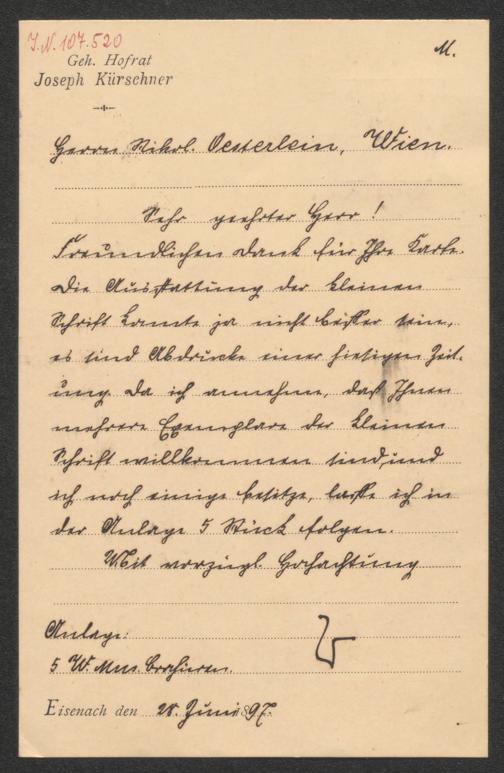 J.N. 107.520
M.
Geh. Hofrat
Joseph Kürschner
Herrn Nikol. Oesterlein, Wien.
Sehr geehrter Herr!
Freundlichen Dank für Ihre Karte.
Die Ausstattung der kleinen
Schrift konnte ja nicht besser sein,
es sind Abdrücke einer hiesigen Zeit-
ung. Da ich annehme, daß Ihnen
mehrere Exemplare der kleinen
Schrift willkommen sind, und
ich noch einige besitze, lasse ich in
der Anlage 5 Stück folgen.
Mit vorzügl. Hochachtung
Anlage:
5 W. Mus. Broschüren.
Eisenach den 28. Juni 1897.